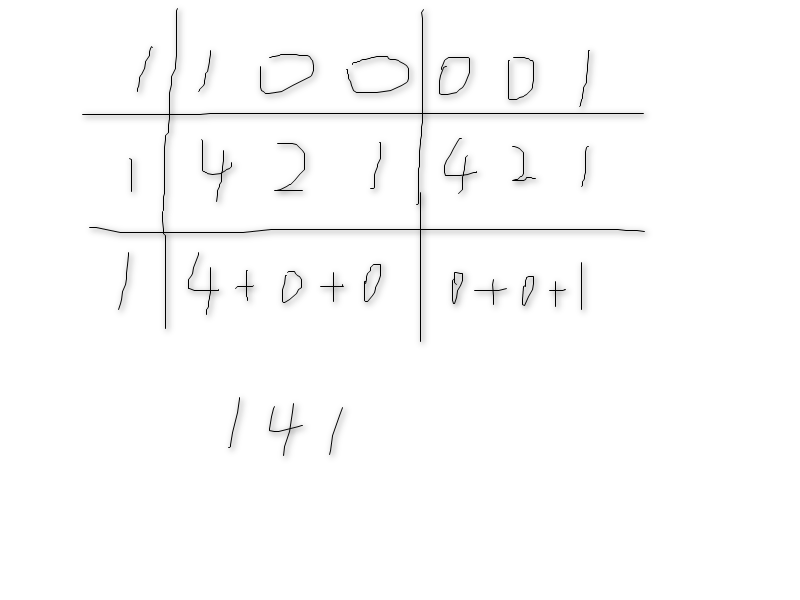 1 1 0 0 0 0 1
1 4 2 1 4 2 1
1 4+0+0 0+0+1
141